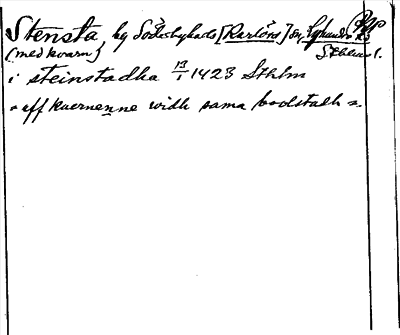 Stensta, by Söderbykarls [Karlörs] sn,
(med kvarn) Sthlms l.
i steinstadha 13/1 1423 Sthlm
" aff kuernenne widh sama boolstadh ".